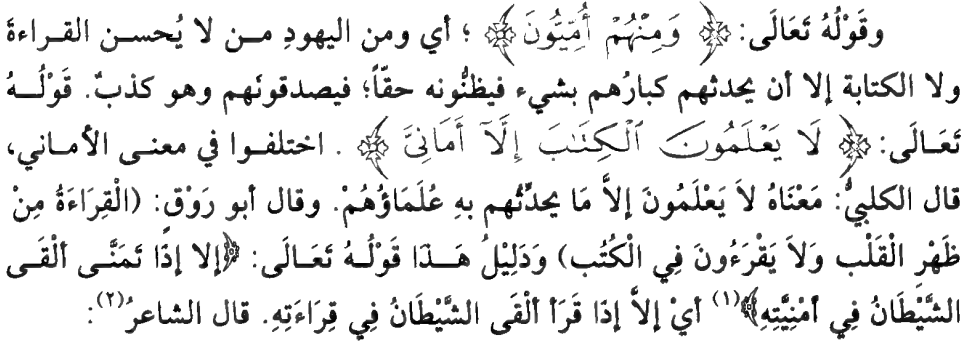 وقَوْلُهُ تَعَالَى: ﴿ وَمِنْهُمْ أُمِّيُّونَ ﴾ ؛ أي ومن اليهودِ مـن لا يُحسـن القـراءةَ
ولا الكتابة إلا أن يحدثهم كبارُهم بشيء فيظنُّونه حقّاً؛ فيصدقونَهم وهو كذبٌ. قَوْلُـهُ
تَعَـالَى: ﴿ لَا يَعْلَمُونَ ٱلْكِتَـٰبَ إِلَّآ أَمَانِىَّ ﴾ . اختلفـوا في معنـى الأمـاني،
قال الكلبيُّ: مَعْنَاهُ لاَ يَعْلَمُونَ إلاَّ مَا يحدِّثُهم بهِ عُلَمَاؤُهُمْ. وقال أبو رَوْقٍ: (الْقِرَاءَةُ مِنْ
ظَهْرِ الْقَلْب وَلاَ يَقْرَءُونَ فِي الْكُتُب) وَدَلِيْلُ هَــذَا قَوْلُـهُ تَعَـالَى: ﴿إلا إذَا تَمَنَّـى ألْقَـى
الشَّيْطَانُ فِي أمْنِيَّتِهِ﴾(١) أيْ إلاَّ إذَا قَرَأ ألْقَى الشَّيْطَانُ فِي قِرَاءَتِهِ. قال الشاعرُ(٢):